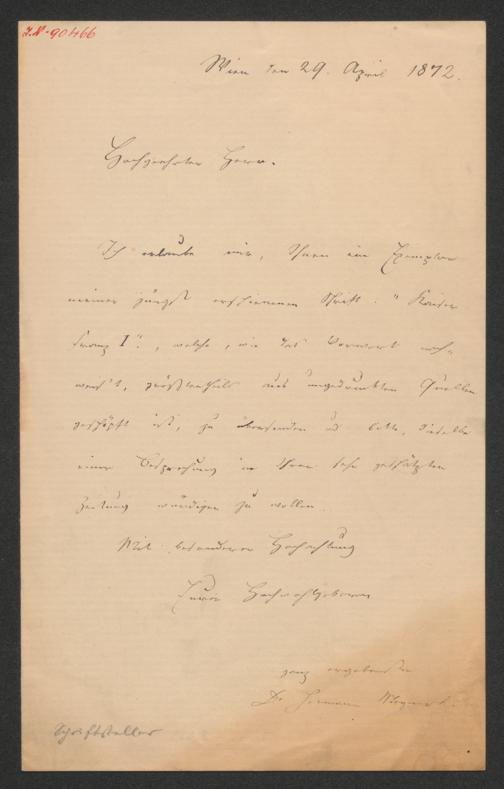 I.N. 90466
Wien den 29. April 1872.
Hochgeehrter Herr.
Ich erlaube mir, Ihnen ein Exemplar
meiner jüngst erschienenen Schrift: "Kaiser
Franz I.", welche, wie das Vorwort nach-
weis't, größtentheils aus ungedruckten Quellen
geschöpft ist, zu übersenden u bitte, dieselbe
einer Besprechung in Ihrer sehr geschätzten
Zeitung würdigen zu wollen.
Mit besonderer Hochachtung
Euer Hochwohlgeboren
ganz ergebenster
Dr Hermann
Schriftsteller